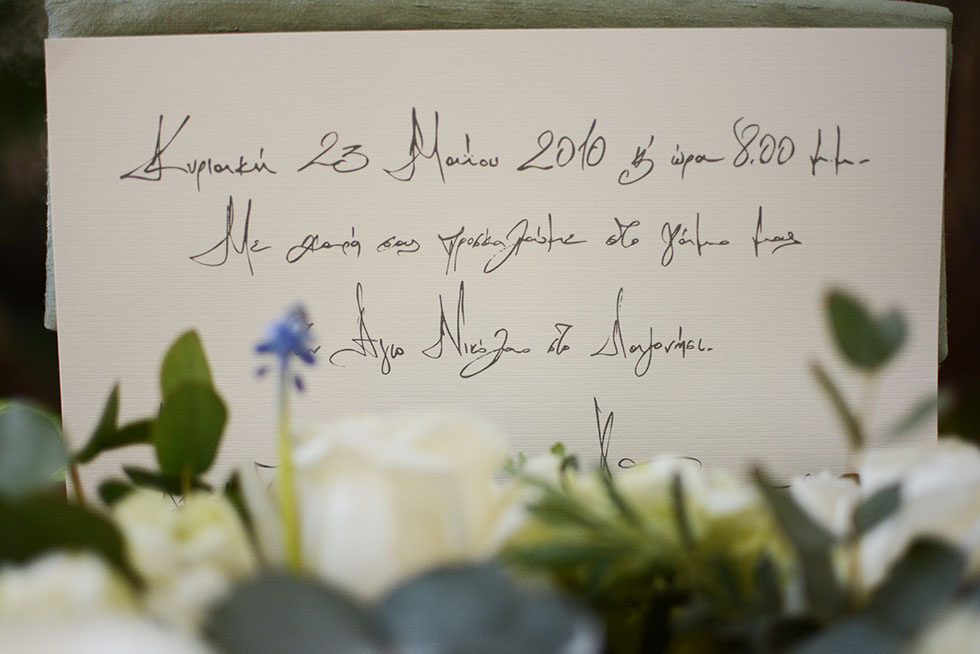 Κυριακή 23 Μαΐου 2010 & ώρα 8.00 μ.μ.
Με χαρά σας προσκαλούμε στο γάμο μας
Άγιο Νικόλαο στο Λαγονήσι.